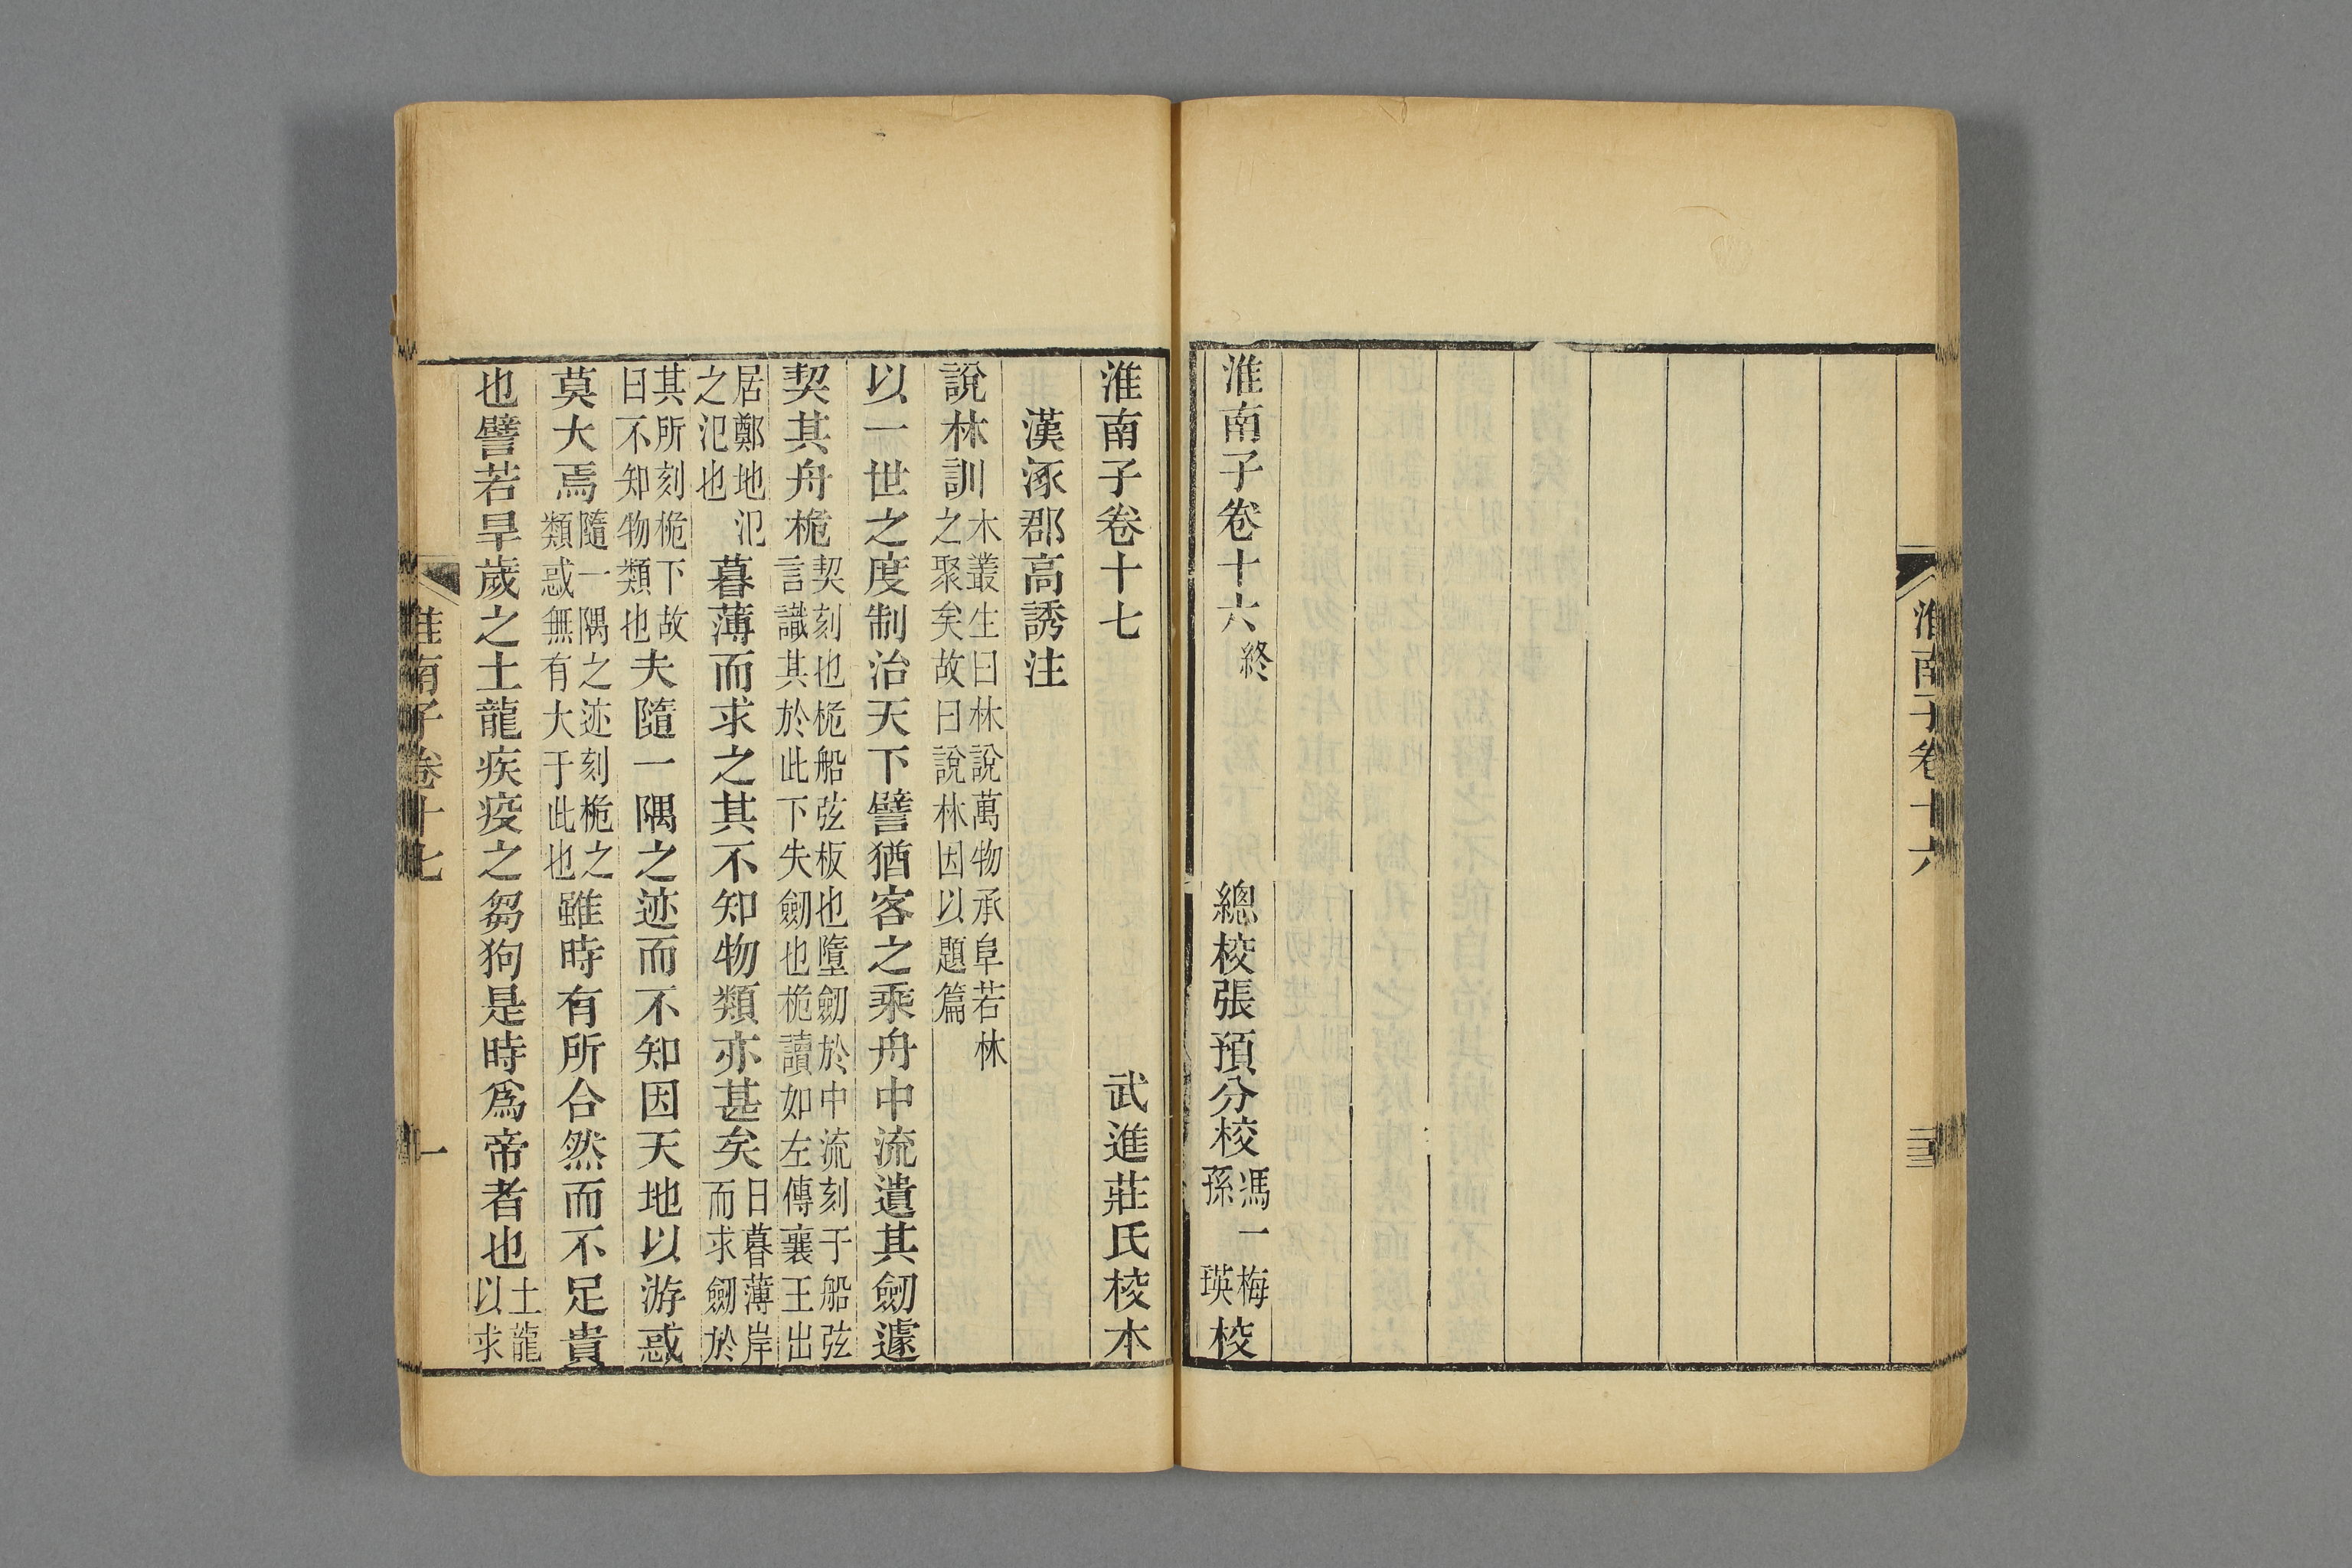 淮南子卷十六
三
淮南子卷十六終
總校張預分校馮一梅孫瑛校
淮南子卷十七
武進莊氏校本
漢涿郡高誘注
說林訓木叢生曰林說萬物承阜若林之聚矣故曰說林因以題篇
以一世之度制治天下譬猶客之乘舟中流遺其劒遽
契其舟桅契刻也桅船弦板也墮劒於中流刻于船弦言識其於此下失劒也桅讀如左傳襄王出
居鄭地氾之氾也暮薄而求之其不知物類亦甚矣日暮薄岸而求劒於
其所刻桅下故曰不知物類也夫隨一隅之迹而不知因天地以游惑
莫大焉隨一隅之迹刻桅之類惑無有大于此也雖時有所合然而不足貴
也譬若旱歲之土龍疾疫之芻狗是時爲帝者也土龍以求
淮南子卷十七
一